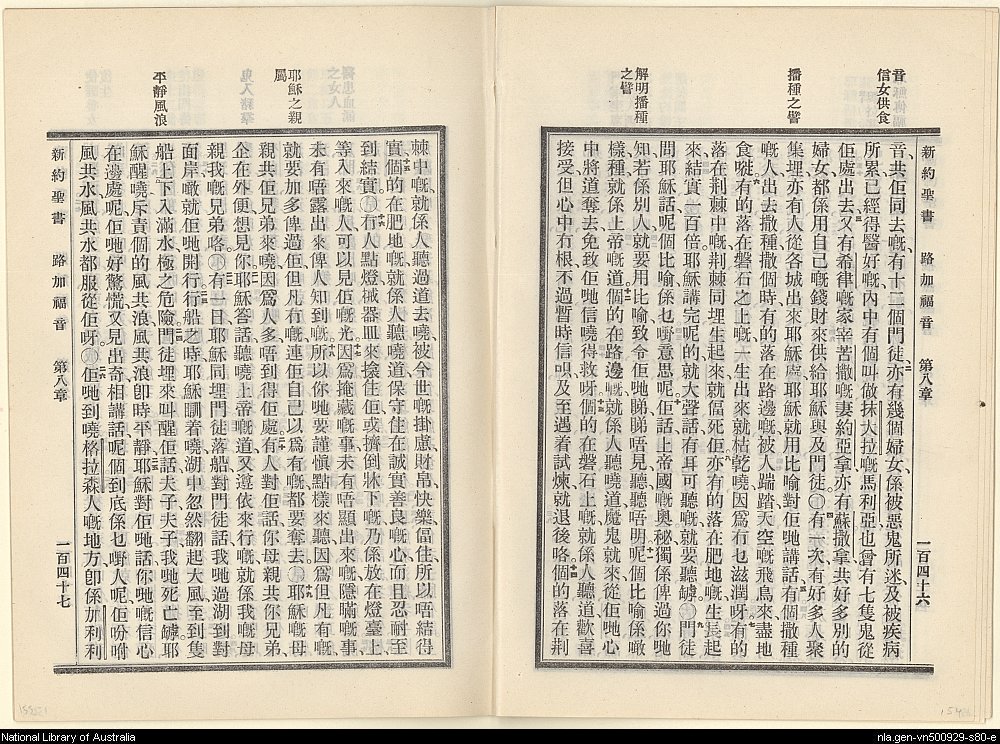 音信女供食
播種之譬
解明播種之譬
新約聖書 路加福音 第八章 一百四十六
音、共佢同去嘅、有十二個門徒、亦有幾個婦女、係被惡鬼所迷、及被疾病
所累、已經得醫好嘅、內中有個叫做抹大拉嘅馬利亞、也曾有七隻鬼從
佢處出去、又有希律嘅家宰苦撒嘅妻約亞拿、亦有蘇撒拿、共好多別的
婦女、都係用自己嘅錢財來供給耶穌與及門徒。○有一次有好多人聚
集埋、亦有人從各城出來耶穌處、耶穌就用比喻對佢哋講話、有個撒種
嘅人出去撒種、撒個時、有的落在路邊嘅、被人踹踏、天空嘅飛鳥來盡地
食嘥、有的落在磐石之上嘅、一生出來就枯乾曉、因爲冇乜滋潤呀、有的
落在荆棘中嘅、荆棘同埋生起來、就偪死佢、亦有的落在肥地嘅、生長起
來、結實一百倍。耶穌講完呢的、就大聲話、有耳可聽嘅、就要聽罅。○門徒
問耶穌話、呢個比喻係乜嘢意思呢、佢話、上帝國嘅奧秘、獨係俾過你哋
知、若係別人、就要用比喻、致令佢哋睇唔見、聽唔明、呢個比喻係噉
樣、種就係上帝嘅道、個的在路邊嘅、就係人聽曉道、魔鬼就來、從佢哋心
中將道奪去、免致佢哋信曉得救呀、個的在磐石上嘅、就係人聽道歡喜
接受、但心中冇根、不過暫時信呮、及至遇着試煉、就退後咯、個的落在荆
耶穌之親屬
平靜風浪
棘中嘅、就係人聽過道去曉、被今世嘅掛慮財帛快樂偪住、所以唔結得
實、個的在肥地嘅、就係人聽曉道、保守住在誠實善良嘅心、而且忍耐至
到結實。○冇人點燈、搣器皿來揜住佢、或擠倒牀下嘅、乃係放在燈臺上、
等入來嘅人可以見佢嘅光。因爲掩藏嘅事、未有唔顯出來嘅、隱瞞嘅事、
未有唔露出來俾人知到嘅、所以你哋要謹愼點樣來聽、因爲但凡有嘅、
就要加多俾過佢、但凡冇嘅、連佢自己以爲有嘅、都要奪去。○耶穌嘅母
親共佢兄弟來曉、因爲人多、唔到得佢處、有人對佢話、你母親共你兄弟
企在外便、想見你、耶穌答話、聽曉上帝嘅道、又遵依來行嘅、就係我嘅母
親我嘅兄弟咯。○有一日、耶穌同埋門徒落船、對門徒話、我哋過湖到對
面岸嚹、就佢哋開行、行船之時、耶穌瞓着曉、湖中忽然翻起大風、至到隻
船上下入滿水、極之危險、門徒埋來叫醒佢話、夫子夫子、我哋死亡罅、耶
穌醒曉、斥責個的風共浪、風共浪卽時平靜、耶穌對佢哋話、你哋嘅信心
在邊處呢、佢哋好驚慌、又見出奇、相講話、呢個到底係乜嘢人呢、佢吩咐
風共水、風共水都服從佢呀。○佢哋到曉格拉森人嘅地方、卽係加利利
新約聖書 路加福音 第八章 一百四十七
National Library of Australia
nla.gen-vn500929-s80-e